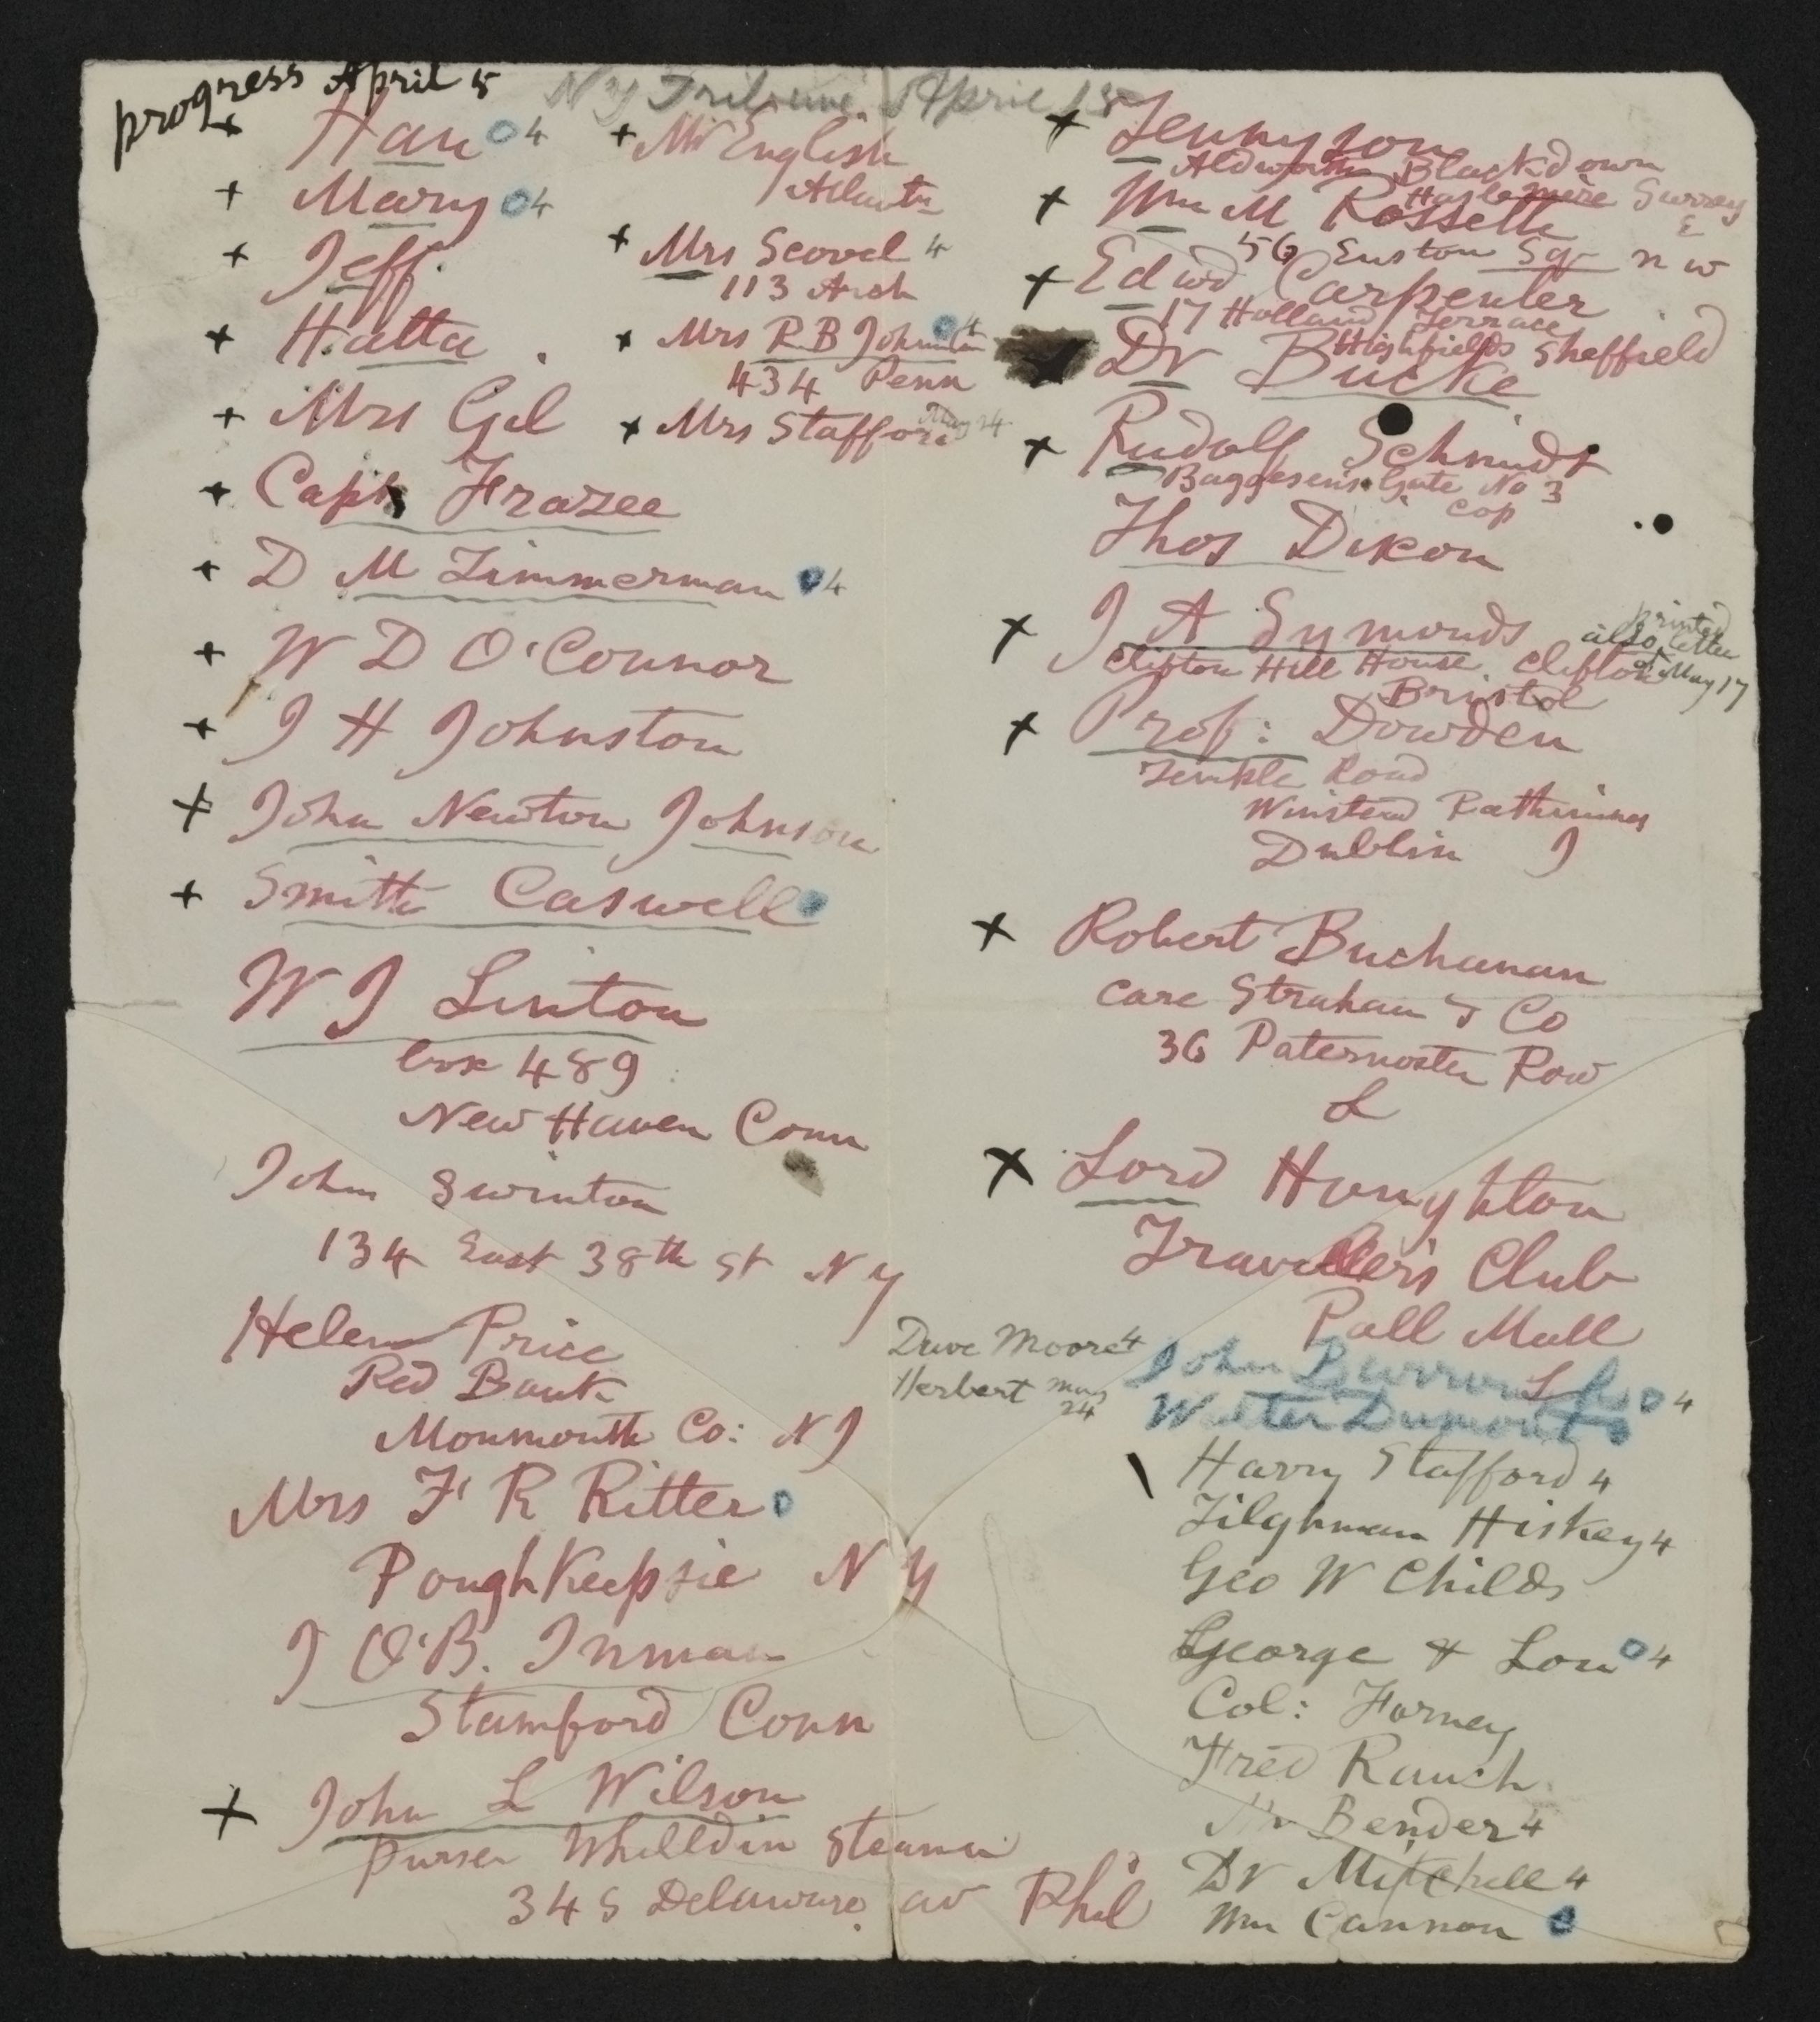 progress April 5
NY Tribune April 15
+ Han 04
+ Mary 04
+ Jeff
+ Hatta
+ Mrs Gil
+ Capt Frazee
+ D M Zimmerman 04
+ W D O'Connor
+ J H Johnston
+ John Newton Johnson
+ Smith Caswell 0
W J Linton
box 489
New Haven Conn
John Swinton
134 East 38th st N Y
Helen Price
Red Bank
Monmouth Co: N J
Mrs F R Ritter 0
Poughkeepsie N Y
J O'B. Inman
Stamford Conn
+ John L Wilson
purser Whilldin steamer
34 S Delaware av Phil
+ Mr English
Atlantic
+ Mrs Scovel 4
113 Arch
+ Mrs R B Johnston 04
434 Penn
+ Mrs Stafford May 24
+ Tennyson
Aldworth Blackdown
Haslemere Surrey
E
+ Wm M Rossetti
56 Euston Sq n w
+ Edwd Carpenter
17 Holland Terrace
Highfields Sheffield
Dr Bucke
+ Rudolf Schmidt
Baggesen's Gate No 3
Cop
Thos Dixon
+ J A Symonds
Clifton Hill House Clifton
Bristol
printed
also letter
of May 17
+ Prof: Dowden
Temple Road
Winstead Rathmines
Dublin I
+ Robert Buchanan
care Strahan & Co
36 Paternoster Row
L
+ Lord Houghton
Traveller's Club
Pall Mall
L
Dave Moore 4
Herbert May
24
John Burroughs 0 4
Walter Dumont 0
\ Harry Stafford 4
Tilghman Hiskey 4
Geo W Childs
George & Lou 0 4
Col: Forney
Fred Rauch
Mr Bender 4
Dr Mitchell 4
Wm Cannon 0